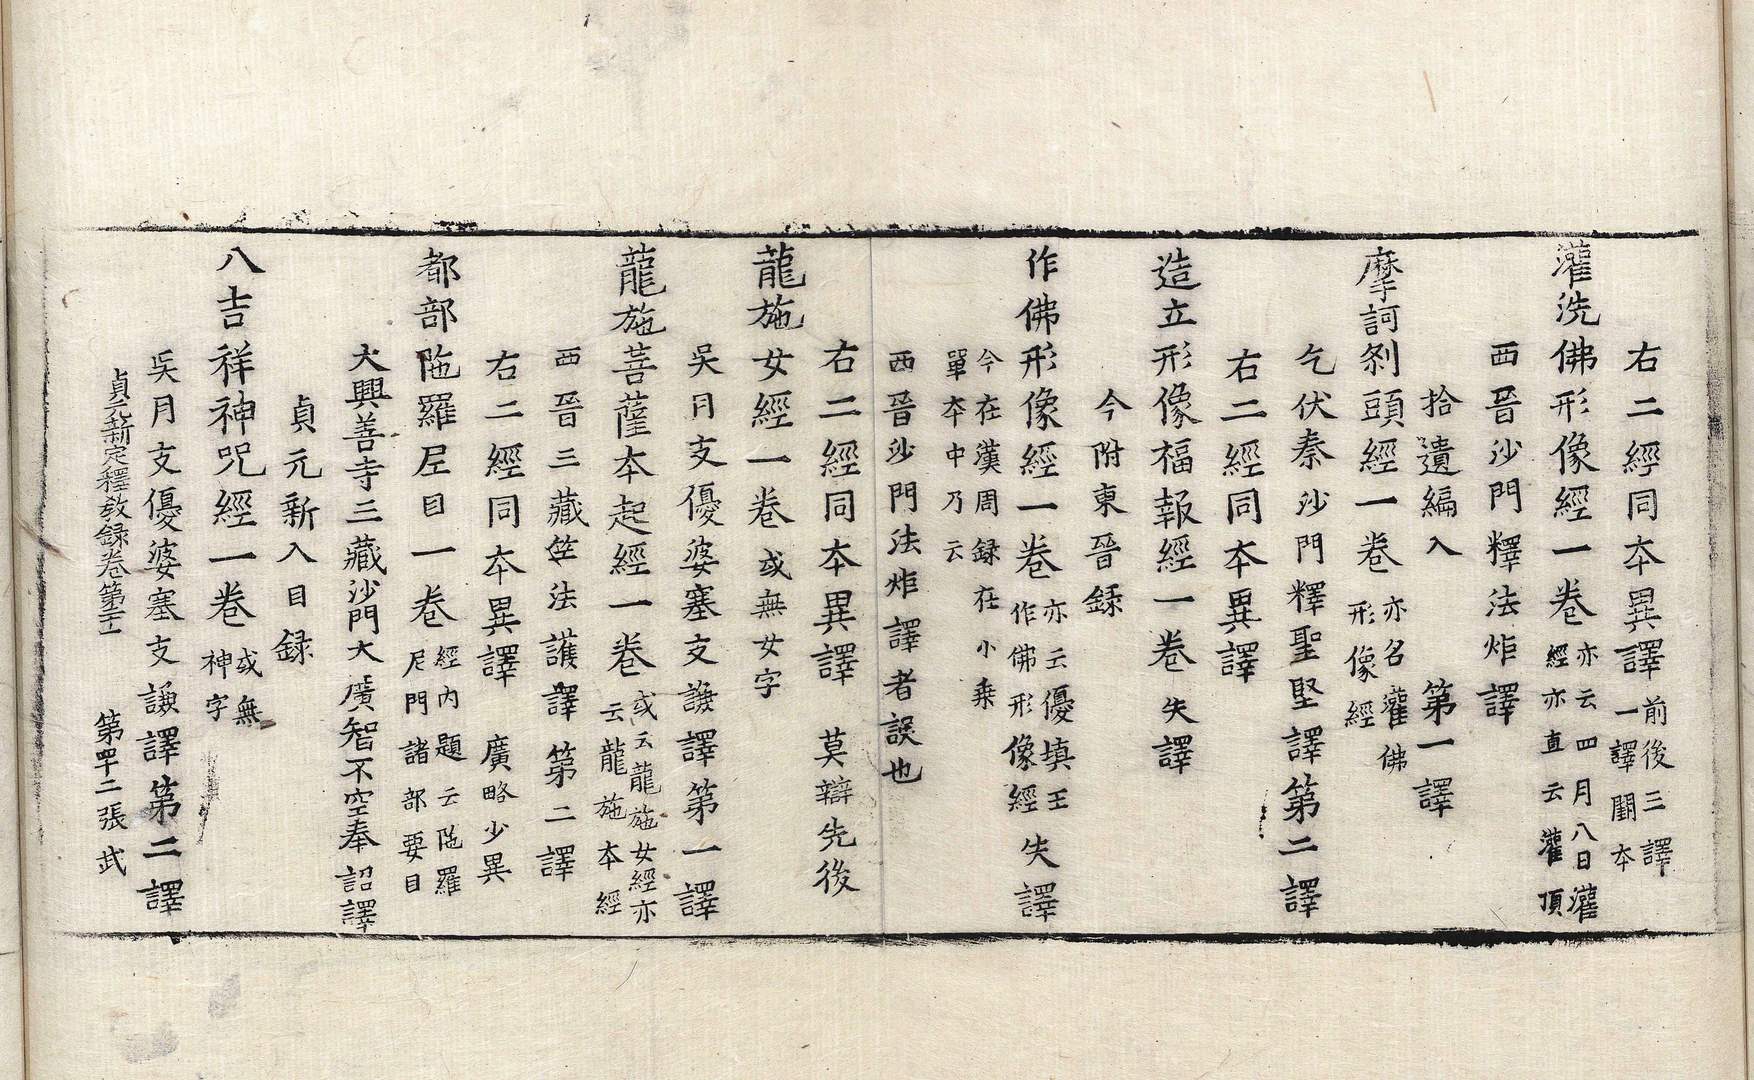 右二經同本異譯前後三譯一譯闕本
灌洗佛形像經一卷亦云四月八日灌經亦直云灌頂
西晉沙門釋法炬譯
拾遺編入　第一譯
摩訶剎頭經一卷亦名灌佛形像經
乞伏秦沙門釋聖堅譯第二譯
右二經同本異譯
造立形像福報經一卷失譯
今附東晉録
作佛形像經一卷亦云優填王作佛形像經失譯
今在漢周録在小乗
單本中乃云
西晉沙門法炬譯者誤也
右二經同本異譯　莫辯先後
龍施女經一卷或無女字
吳月支優婆塞支謙譯第一譯
龍施菩薩本起經一卷或云龍施女經亦云龍施本經
西晉三藏竺法護譯第二譯
右二經同本異譯　廣略少異
都部陁羅尼目一卷經内題云陁羅尼門諸部要目
大興善寺三藏沙門大廣智不空奉詔譯
貞元新入目録
八吉祥神呪經一卷或無神字
吳月支優婆塞支謙譯第二譯
貞元新定釋教録卷第三十　第四十二張　武